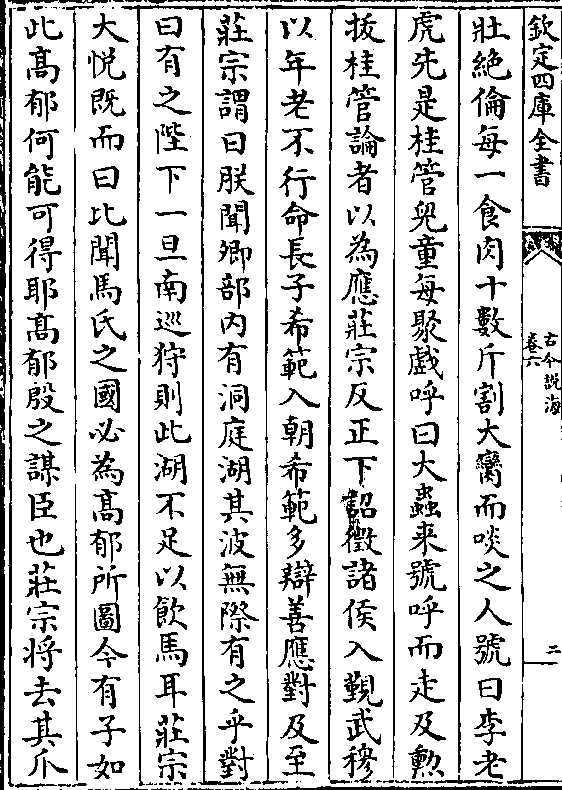 欽定四庫全書
古今說海
卷六
二
壯絶倫每一食肉十數斤割大臠而啖之人號曰李老
虎先是桂管兒童每聚戲呼曰大蟲来號呼而走及勲
拔桂管論者以為應莊宗反正下詔徵諸侯入覲武穆
以年老不行命長子希範入朝希範多辯善應對及至
莊宗謂曰朕聞卿部内有洞庭湖其波無際有之乎對
曰有之陛下一旦南巡狩則此湖不足以飲馬耳莊宗
大悦既而曰比聞馬氏之國必為髙郁所圖今有子如
此髙郁何能可得耶髙郁殷之謀臣也莊宗将去其爪